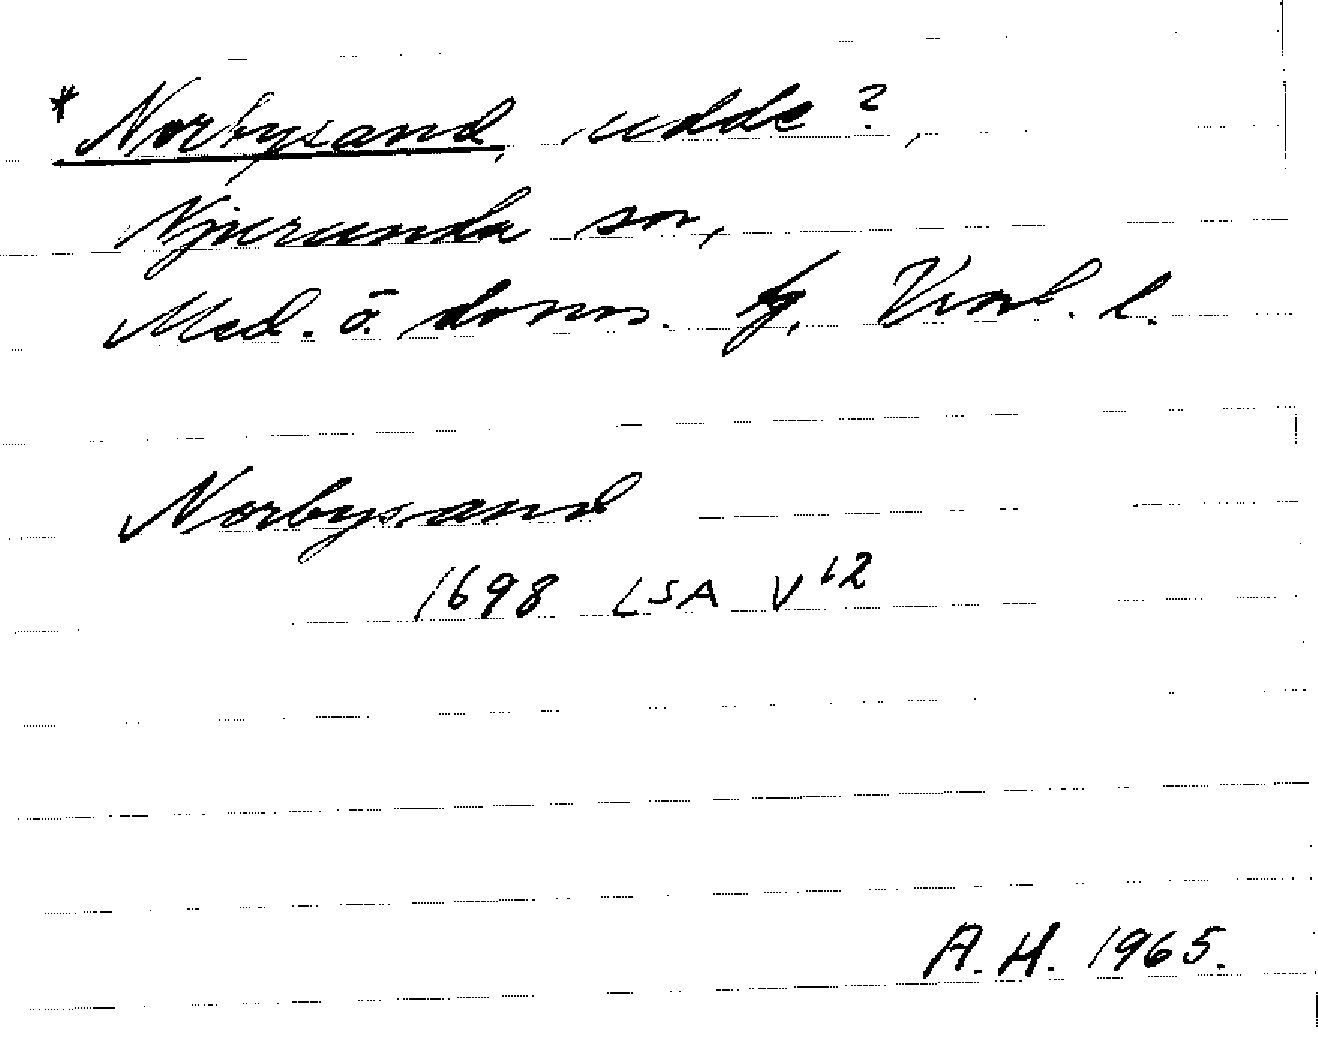 *Norbysand, udde?,
Njurunda sn,
Med. ö. doms. hg, Vnl. l.
Norbysand
1698 LSA V 12
A.H. 1965.